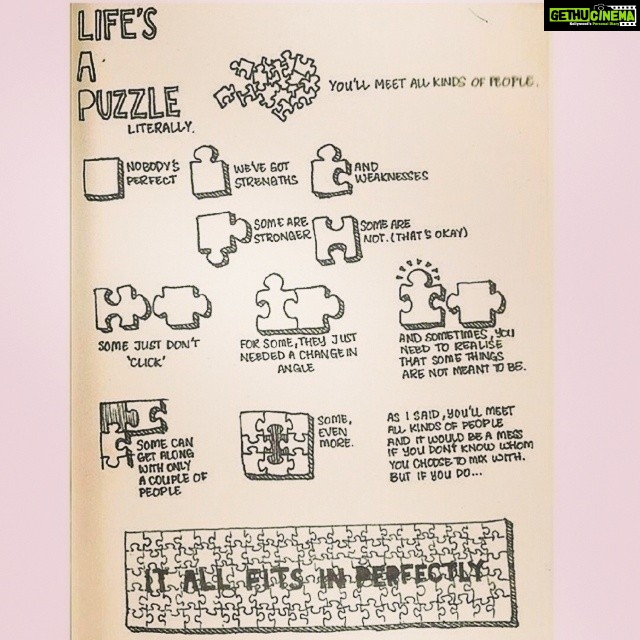 GETHUCINEMA
LIFE'S
A
PUZZLE
LITERALLY.
YOU'LL MEET ALL KINDS OF PEOPLE.
NOBODY'S
PERFECT
WE'VE GOT
STRENGTHS
AND
WEAKNESSES
SOME ARE
STRONGER
SOME ARE
NOT. (THAT'S OKAY)
SOME JUST DON'T
'CLICK'
FOR SOME, THEY JUST
NEEDED A CHANGE IN
ANGLE
AND SOMETIMES, YOU
NEED TO REALISE
THAT SOME THINGS
ARE NOT MEANT TO BE.
SOME CAN
GET ALONG
WITH ONLY
A COUPLE OF
PEOPLE
SOME,
EVEN
MORE.
AS I SAID, YOU'LL MEET
ALL KINDS OF PEOPLE
AND IT WOULD BE A MESS
IF YOU DON'T KNOW WHOM
YOU CHOOSE TO MIX WITH.
BUT IF YOU DO...
IT ALL FITS IN PERFECTLY